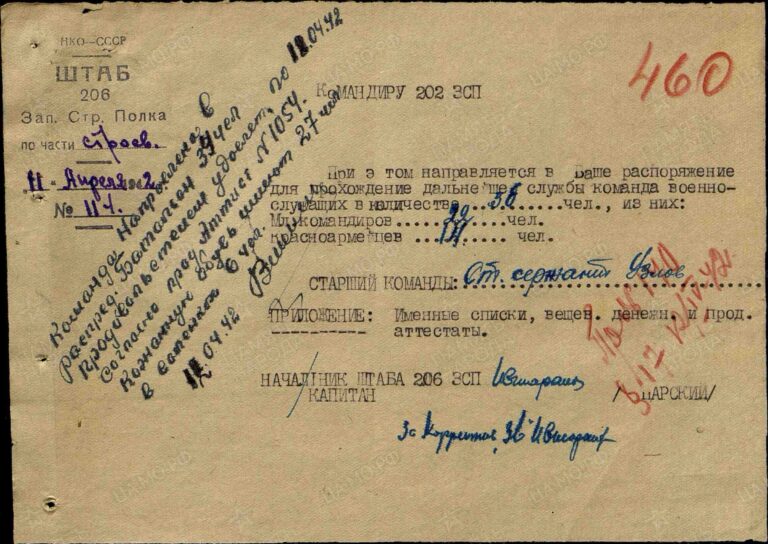 НКО—СССР
ШТАБ
206
Зап. Стр. Полка
по части строев.
11 Апреля 1942
№ 114.
460
КОМАНДИРУ 202 ЗСП
При э том направляется в Ваше распоряжение
для прохождение дальне шей службы команда военно-
служащих в количестве 36 чел., из них:
Мл.командиров 22 чел.
Красноармейцев 14 чел.
СТАРШИЙ КОМАНДЫ: Ст. сержант Узлов
ПРИЛОЖЕНИЕ: Именные списки, вещев. денежн. и прод.
аттестаты.
НАЧАЛЬНИК ШТАБА 206 ЗСП
КАПИТАН / ЦАРСКИЙ/
Команда Направлена в
распред. Батальон 39 чел
продовольствием удовлет. по 12.04.42
Согласно прод Аттест N 1054.
Кожанную обувь имеют 27 чел
в ботинках 6 чел.
12.04.42